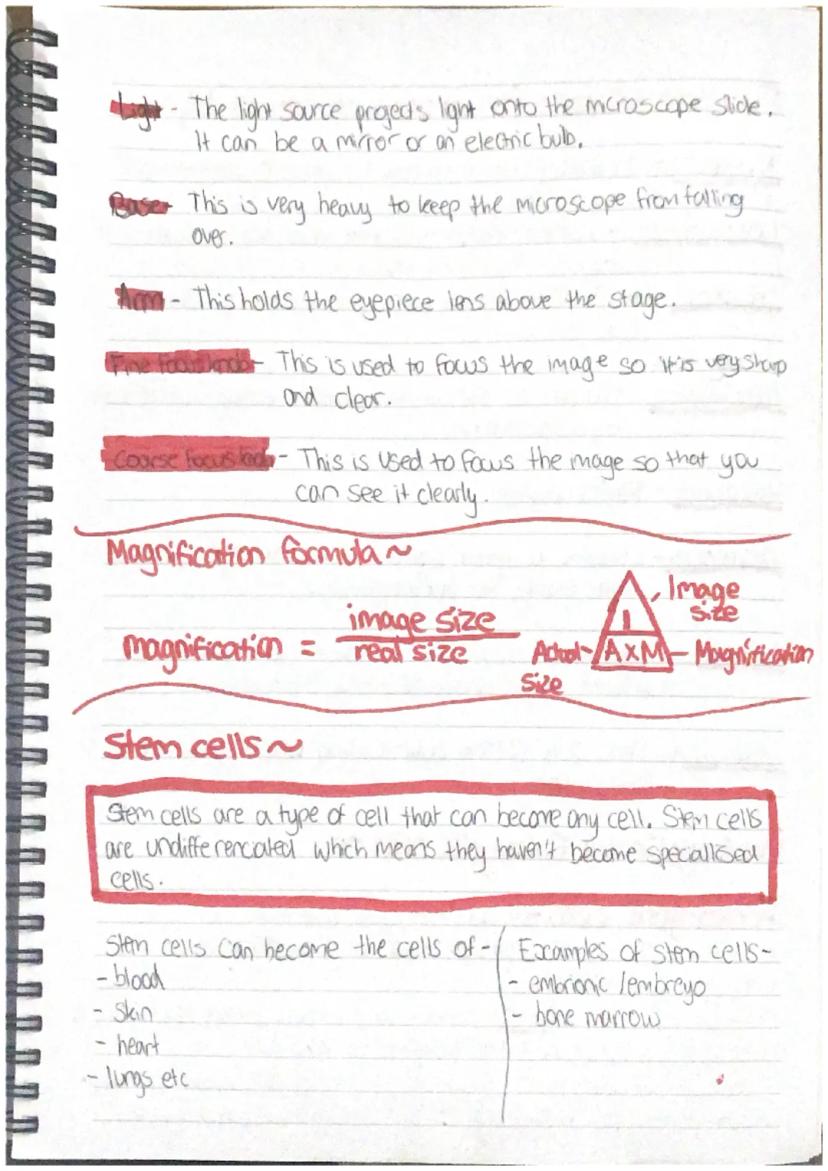 Light - The light source projects light onto the microscope slide.
It can be a mirror or an electric bulb.
Base - This is very heavy to keep the microscope from falling
over.
Arm - This holds the eyepiece lens above the stage.
Fine focus knob - This is used to focus the image so it is very sharp
and clear.
Coarse focus knob - This is used to focus the image so that you
can see it clearly.
Magnification formula ~
magnification = image size
real size
I
Image
size
Actual
size
A x M
Magnification
Stem cells ~
Stem cells are a type of cell that can become any cell. Stem cells
are undifferenciated which means they haven't become specialised
cells.
Stem cells can become the cells of -
- blood
- skin
- heart
- lungs etc
Examples of stem cells -
- embrionic / embreyo
- bone marrow